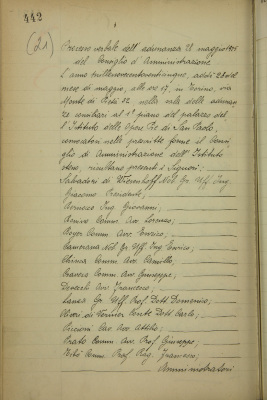 442
(21)
Processo verbale dell'adunanza 28 maggio
del Consiglio d'Amministrazione
L'anno millenovecentoventicinque, addì 28 del
mese di maggio, alle ore 17, in Torino, via
Monte di Pietà 32 nella sala delle adunan
ze consiliari al 1° piano del palazzo del
l'Istituto delle Opere Pie di San Paolo,
convocatosi nelle prescritte forme il Consi
glio di Amministrazione dell'Istituto
stesso, risultano presenti i Signori:
Salvadori di Wiesenhoff Nob. Gr. Uff. Ing.
Giacomo Presidente;
Ing. Giovanni;
Comm. Avv. Lorenzo;
Comm. Avv. Enrico;
Nob. Gr. Uff. Ing. Enrico;
Comm. Avv. Camillo
Comm. Avv. Giuseppe;
Avv. Francesco;
Gr. Uff. Prof. Dott. Domenico;
di Conte Dott. Carlo;
Cav. Avv. Attilio;
Prato Comm. Avv. Prof. Giuseppe;
Comm. Prof. Rag. Francesco;
Amministratori